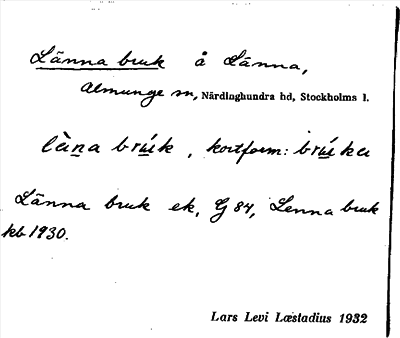 Länna bruk å Länna,
Almunge sn, Närdinghundra hd, Stockholms l.
làṉa brú̲k, kortform: brú̲ka
Länna bruk ek, G 84, Lenna bruk
kb 1930.
Lars Levi Læstadius 1932